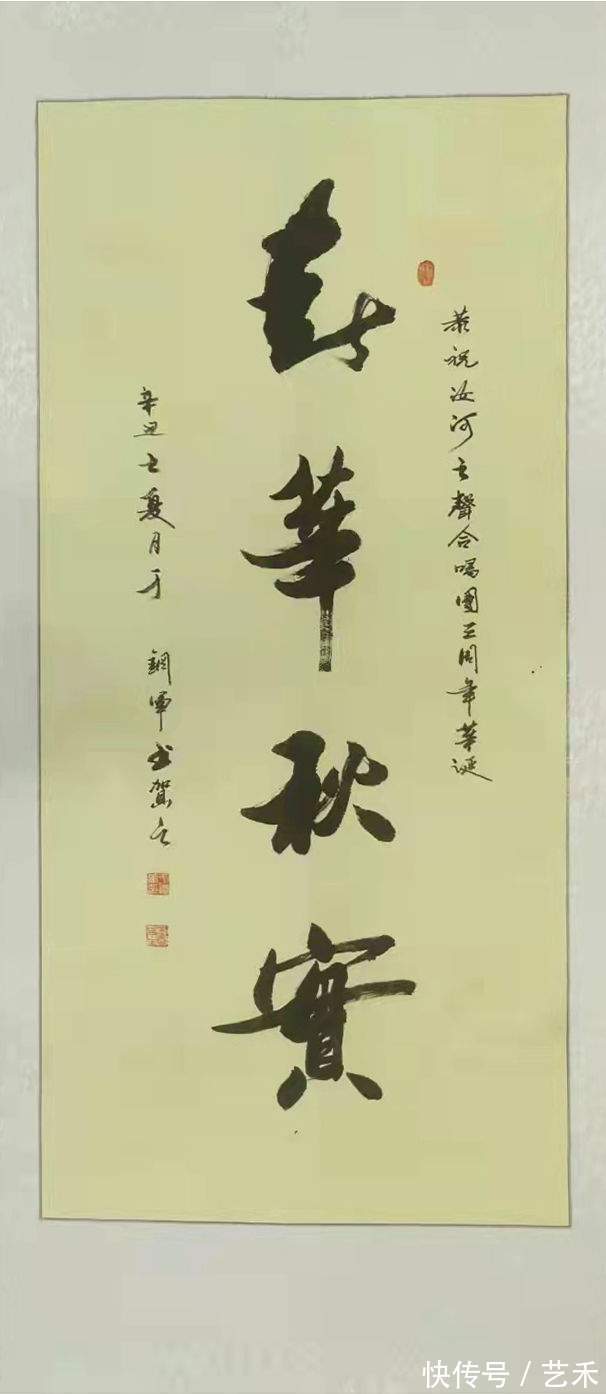 恭祝汝河之聲合唱團周年華誕
春華秋實
辛丑之夏月于 鋼軍书賀之
快传号 / 艺禾